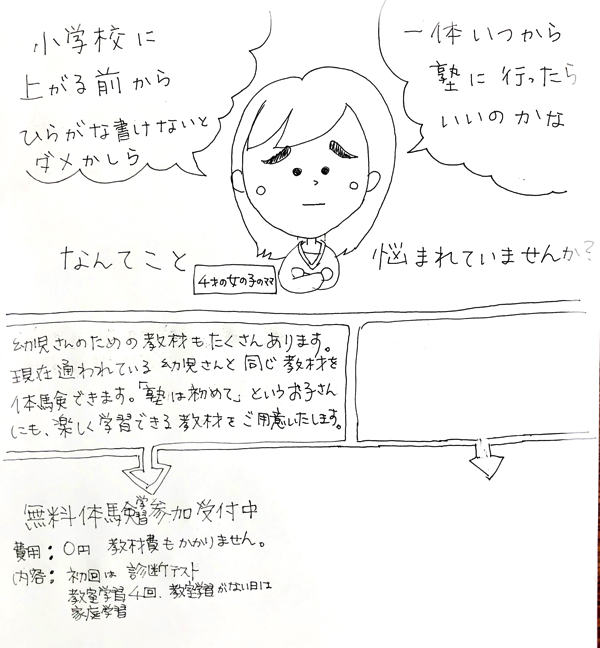 小学校に
上がる前から
ひらがな書けないと
ダメかしら
一体いつから
塾に行ったら
いいのかな
なんてこと
4才の女の子のママ
悩まれていませんか?
幼児さんのための教材もたくさんあります。
現在通われている幼児さんと同じ教材を
体験できます。「塾は初めて」というお子さん
にも、楽しく学習できる教材をご用意いたします。
無料体験学習参加受付中
費用:0円 教材費もかかりません。
内容:初回は診断テスト
教室学習4回、教室学習がない日は
家庭学習